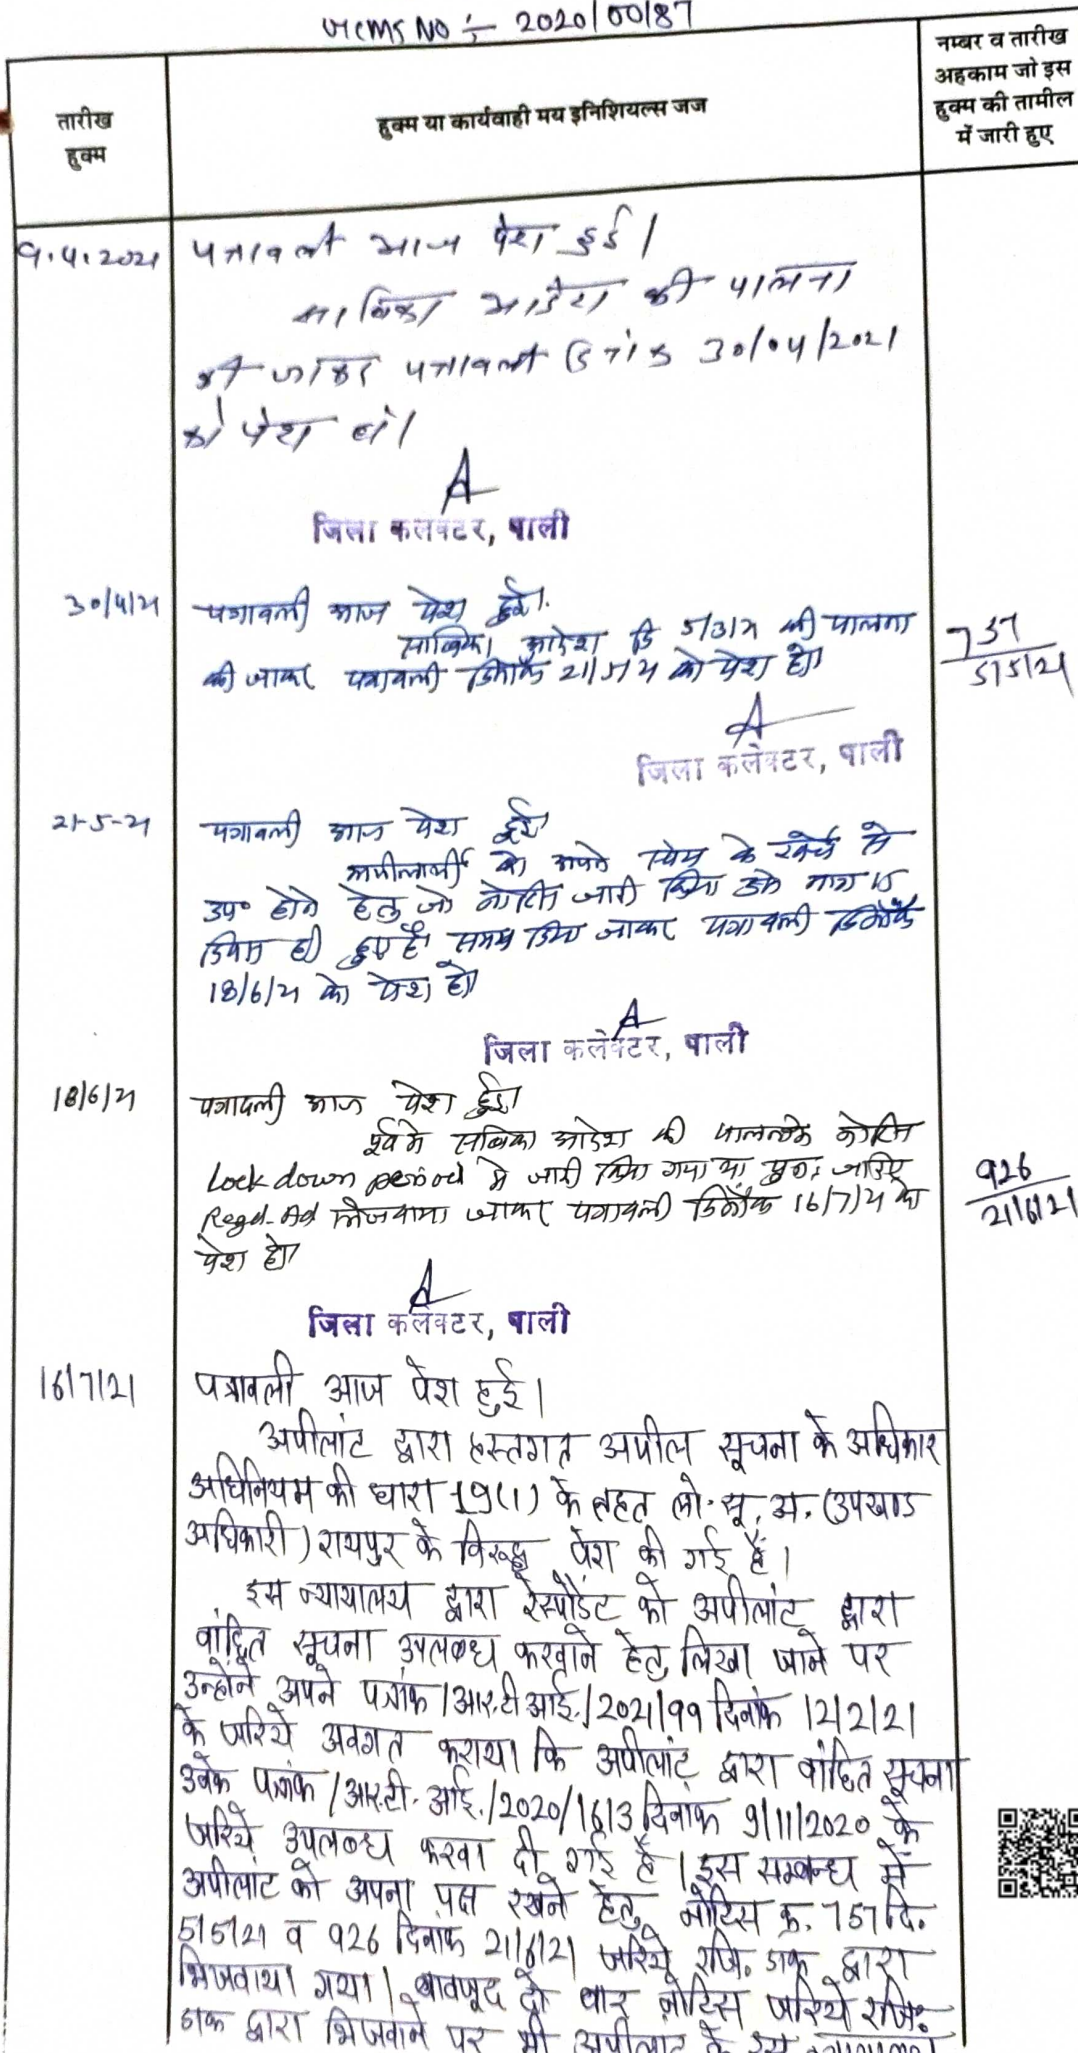 VCMS NO :- 2020/00/87
तारीख
हुक्म
हुक्म या कार्यवाही मय इनिशियल्स जज
नम्बर व तारीख
अहकाम जो इस
हुक्म की तामील
में जारी हुए
9.4.2021 पत्रावली आज पेश हुई।
साबिका आदेश की पालना
की जाकर पत्रावली दिनांक 30/04/2021
को पेश हो।
जिला कलक्टर, पाली
30/4/21 पत्रावली आज पेश हुई।
साबिका आदेश दि 5/3/21 की पालना
की जाकर पत्रावली दिनांक 21/5/21 को पेश हो।
757
5/5/21
जिला कलेक्टर, पाली
21-5-21 पत्रावली आज पेश हुई।
अपीलार्थी को अपने के
उप० होने हेतु जो नोटिस जारी किया उसे मात्र 15
दिवस ही हुए है। समय दिया जाकर पत्रावली दिनांक
18/6/21 को पेश हो।
जिला कलेक्टर, पाली
18/6/21 पत्रावली आज पेश हुई।
पूर्व में साबिका आदेश की पालना में नोटिस
Lock down period में जारी किया गया था पुनः जरिए
Regd. AD भिजवाया जाकर पत्रावली दिनांक 16/7/21 को
पेश हो।
926
21/6/21
जिला कलेक्टर, पाली
16/7/21 पत्रावली आज पेश हुई।
अपीलांट द्वारा हस्तगत अपील सूचना के अधिकार
अधिनियम की धारा 19(1) के तहत लो. सू. अ. (उपखण्ड
अधिकारी) रायपुर के विरूद्ध पेश की गई हैं।
इस न्यायालय द्वारा रेस्पोंडेंट को अपीलांट द्वारा
वांछित सूचना उपलब्ध करवाने हेतु लिखा जाने पर
उन्होंने अपने पत्रांक/आर.टी.आई./2021/99 दिनांक 12/2/21
के जरिये अवगत कराया कि अपीलांट द्वारा वांछित सूचना
उनके पत्रांक/आर.टी.आई./2020/1613 दिनांक 9/11/2020 के
जरिये उपलब्ध करवा दी गई है। इस सम्बन्ध में
अपीलांट को अपना पक्ष रखने हेतु नोटिस क्र. 757 दि.
5/5/21 व 926 दिनांक 21/6/21 जरिये रजि. डाक द्वारा
भिजवाया गया। बावजूद दो बार नोटिस जरिये रजि.
डाक द्वारा भिजवाने पर भी अपीलांट के इस